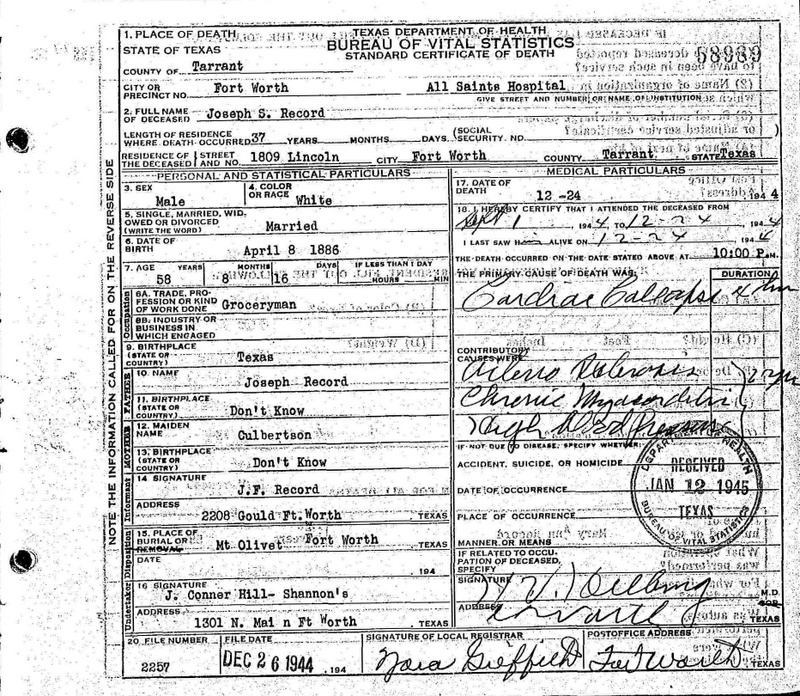 TEXAS DEPARTMENT OF HEALTH
BUREAU OF VITAL STATISTICS
STANDARD CERTIFICATE OF DEATH
58989
1. PLACE OF DEATH
STATE OF TEXAS
COUNTY OF Tarrant
CITY OR PRECINCT NO. Fort Worth All Saints Hospital
GIVE STREET AND NUMBER OR NAME OF INSTITUTION
2. FULL NAME OF DECEASED Joseph S. Record
LENGTH OF RESIDENCE WHERE DEATH OCCURRED 37 YEARS MONTHS DAYS (SOCIAL SECURITY NO. )
RESIDENCE OF THE DECEASED STREET AND NO. 1809 Lincoln CITY Fort Worth COUNTY Tarrant STATE Texas
NOTE THE INFORMATION CALLED FOR ON THE REVERSE SIDE
PERSONAL AND STATISTICAL PARTICULARS
3. SEX Male
4. COLOR OR RACE White
5. SINGLE, MARRIED, WIDOWED OR DIVORCED (WRITE THE WORD) Married
6. DATE OF BIRTH April 8 1886
7. AGE YEARS MONTHS DAYS IF LESS THAN 1 DAY
58 8 16 HOURS MIN
Occupation
8A. TRADE, PROFESSION OR KIND OF WORK DONE Groceryman
8B. INDUSTRY OR BUSINESS IN WHICH ENGAGED
9. BIRTHPLACE (STATE OR COUNTRY) Texas
FATHER
10. NAME Joseph Record
11. BIRTHPLACE (STATE OR COUNTRY) Don't Know
MOTHER
12. MAIDEN NAME Culbertson
13. BIRTHPLACE (STATE OR COUNTRY) Don't Know
Informant
14 SIGNATURE J.F. Record
ADDRESS 2208 Gould Ft.Worth, TEXAS
Disposition
15. PLACE OF BURIAL OR REMOVAL Mt Olivet Fort Worth, TEXAS
DATE 194
Undertaker
16 SIGNATURE J. Conner Hill- Shannon's
ADDRESS 1301 N. Mai n Ft Worth, TEXAS
MEDICAL PARTICULARS
17. DATE OF DEATH 12 -24 194 4
18. I HEREBY CERTIFY THAT I ATTENDED THE DECEASED FROM
Sept 1 194 4 TO 12-24 194 4
I LAST SAW Him ALIVE ON 12-24 194 4
THE DEATH OCCURRED ON THE DATE STATED ABOVE AT 10:00 P.M.
THE PRIMARY CAUSE OF DEATH WAS: DURATION
Cardiac Collapse
CONTRIBUTORY CAUSES WERE:
Arterio Sclerosis
Chronic Myocarditis
High Blood Pressure
IF NOT DUE TO DISEASE, SPECIFY WHETHER:
ACCIDENT, SUICIDE, OR HOMICIDE
DATE OF OCCURRENCE
PLACE OF OCCURRENCE
MANNER OR MEANS
IF RELATED TO OCCUPATION OF DECEASED, SPECIFY
SIGNATURE M.D.
ADDRESS TEXAS
DEPARTMENT OF HEALTH
RECEIVED
JAN 12 1945
TEXAS
BUREAU OF VITAL STATISTICS
20 FILE NUMBER 2257
FILE DATE DEC 26 1944, 194
SIGNATURE OF LOCAL REGISTRAR Griffith
POSTOFFICE ADDRESS Fort Worth TEXAS